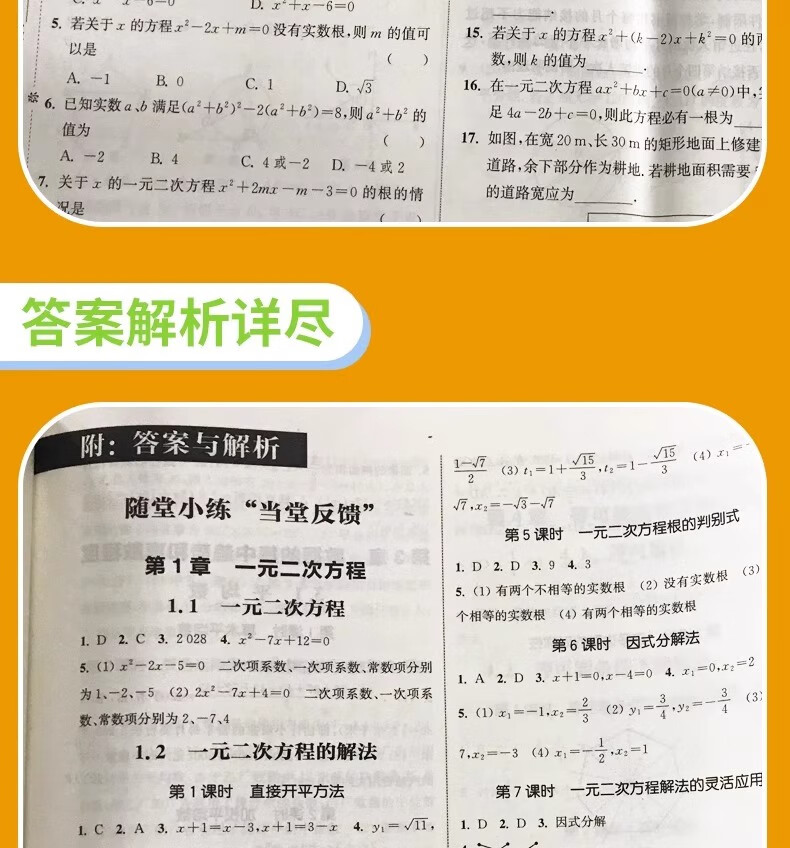 D. x²+x−6=0
5. 若关于 x 的方程 x²−2x+m=0 没有实数根,则 m 的值可
以是 ( )
A. −1 B. 0 C. 1 D. √3
6. 已知实数 a、b 满足(a²+b²)²−2(a²+b²)=8,则 a²+b² 的
值为 ( )
A. −2 B. 4 C. 4 或−2 D. −4 或 2
7. 关于 x 的一元二次方程 x²+2mx−m−3=0 的根的情
况是 ( )
15. 若关于 x 的方程 x²+(k−2)x+k²=0 的
数,则 k 的值为______.
16. 在一元二次方程 ax²+bx+c=0(a≠0)中,
足 4a−2b+c=0,则此方程必有一根为
17. 如图,在宽 20 m、长 30 m 的矩形地面上修建
道路,余下部分作为耕地. 若耕地面积需要
的道路宽应为______.
答案解析详尽
附: 答案与解析
随堂小练“当堂反馈”
第 1 章 一元二次方程
1.1 一元二次方程
1. D 2. C 3. 2 028 4. x²−7x+12=0
5. (1) x²−2x−5=0 二次项系数、一次项系数、常数项分别
为 1、−2、−5 (2) 2x²−7x+4=0 二次项系数、一次项系
数、常数项分别为 2、−7、4
1.2 一元二次方程的解法
第 1 课时 直接开平方法
1. C 2. A 3. x+1=x−3,x+1=3−x 4. y₁=√11,
(1−√7)/2 (3) t₁=1+√15/3,t₂=1−√15/3 (4) x₁=
√7,x₂=−√3−√7
第 5 课时 一元二次方程根的判别式
1. D 2. D 3. 9 4. 3
5. (1) 有两个不相等的实数根 (2) 没有实数根 (3)
个相等的实数根 (4) 有两个相等的实数根
第 6 课时 因式分解法
1. A 2. D 3. x+1=0,x−4=0 4. x₁=0,x₂=2
5. (1) x₁=−1,x₂=2/3 (2) y₁=3/4,y₂=−3/4 (3)
7,x₂=−3 (4) x₁=−1/2,x₂=1
第 7 课时 一元二次方程解法的灵活应用
1. D 2. D 3. 因式分解